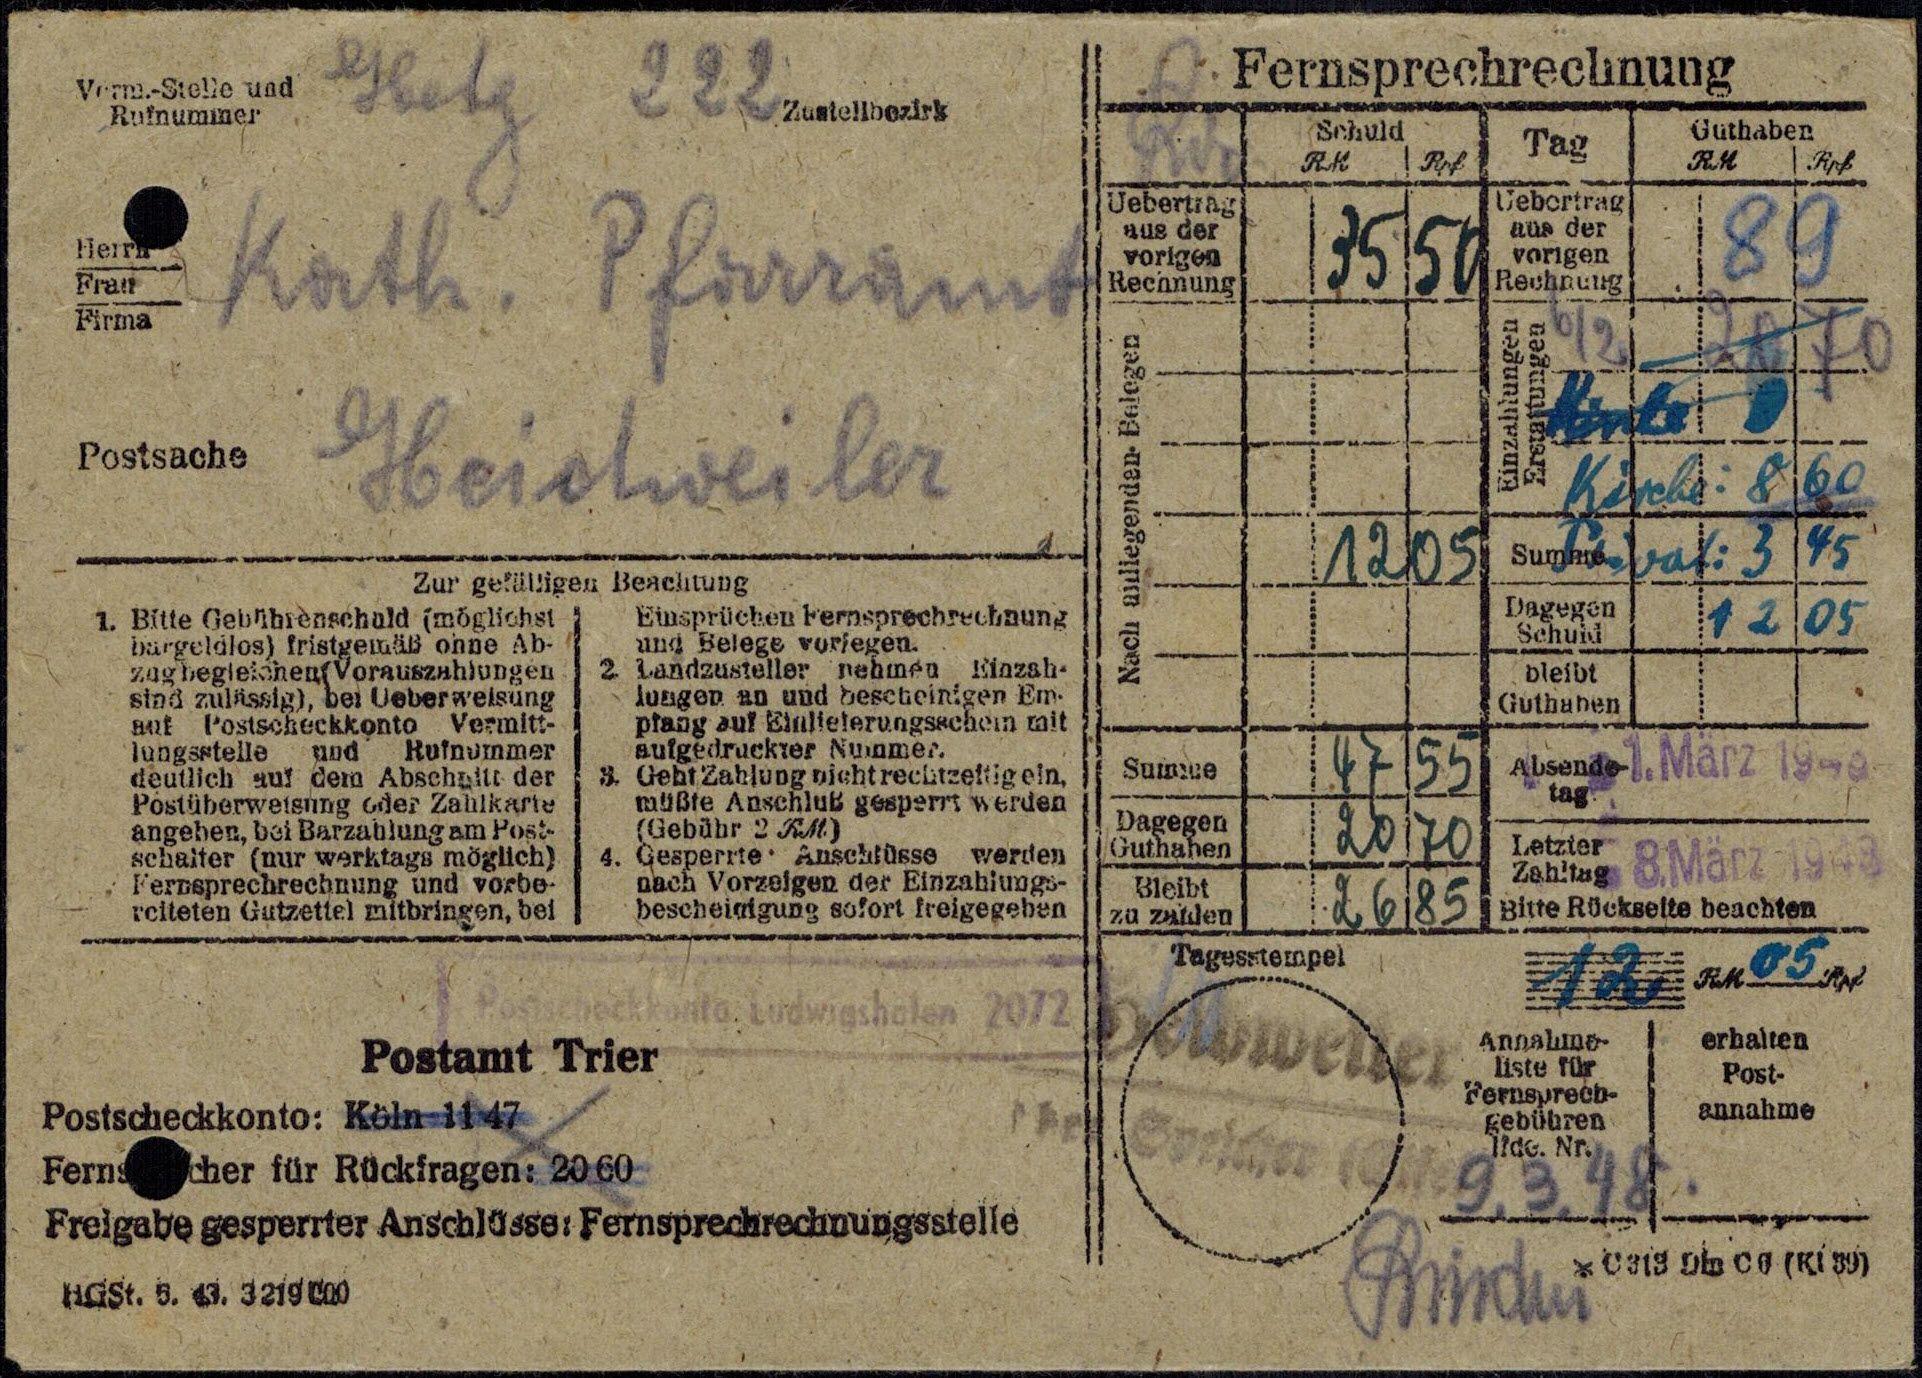 Verm.-Stelle und
Rufnummer
222
Zustellbezirk
Herrn
Frau
Firma
Kath. Pfarramt
Postsache
Heidweiler
Zur gefälligen Beachtung
1. Bitte Gebührenschuld (möglichst
bargeldlos) fristgemäß ohne Ab-
zug begleichen (Vorauszahlungen
sind zulässig), bei Ueberweisung
auf Postscheckkonto Vermitt-
lungsstelle und Rufnummer
deutlich auf dem Abschnitt der
Postüberweisung oder Zahlkarte
angeben, bei Barzahlung am Post-
schalter (nur werktags möglich)
Fernsprechrechnung und vorbe-
reiteten Gutzettel mitbringen, bei
Einsprüchen Fernsprechrechnung
und Belege vorlegen.
2. Landzusteller nehmen Einzah-
lungen an und bescheinigen Em-
pfang auf Einlieferungsschein mit
aufgedruckter Nummer.
3. Geht Zahlung nicht rechtzeitig ein,
müßte Anschluß gesperrt werden
(Gebühr 2 RM.)
4. Gesperrte Anschlüsse werden
nach Vorzeigen der Einzahlungs-
bescheinigung sofort freigegeben
Postscheckkonto Ludwigshafen 2072
Postamt Trier
Postscheckkonto: Köln 11 47
Fernsprecher für Rückfragen: 20 60
Freigabe gesperrter Anschlüsse: Fernsprechrechnungsstelle
HGSt. 5. 43. 3 219 000
Fernsprechrechnung
Schuld
RM Rpf
Tag
Guthaben
RM Rpf
Uebertrag
aus der
vorigen
Rechnung
35 50
Uebertrag
aus der
vorigen
Rechnung
89
Nach anliegenden Belegen
Einzahlungen
Erstattungen
6/2. 20 70
Kirche: 8 60
12 05
Summe
Privat: 3 45
Dagegen
Schuld
12 05
bleibt
Guthaben
Summe
47 55
Absende-
tag
1. März 1948
Dagegen
Guthaben
20 70
Letzter
Zahltag
8. März 1948
Bleibt
zu zahlen
26 85
Bitte Rückseite beachten
Tagesstempel
12 RM 05 Rpf
Annahme-
liste für
Fernsprech-
gebühren
lfde. Nr.
erhalten
Post-
annahme
9.3.48.
C 313 Din C 6 (Kl 39)